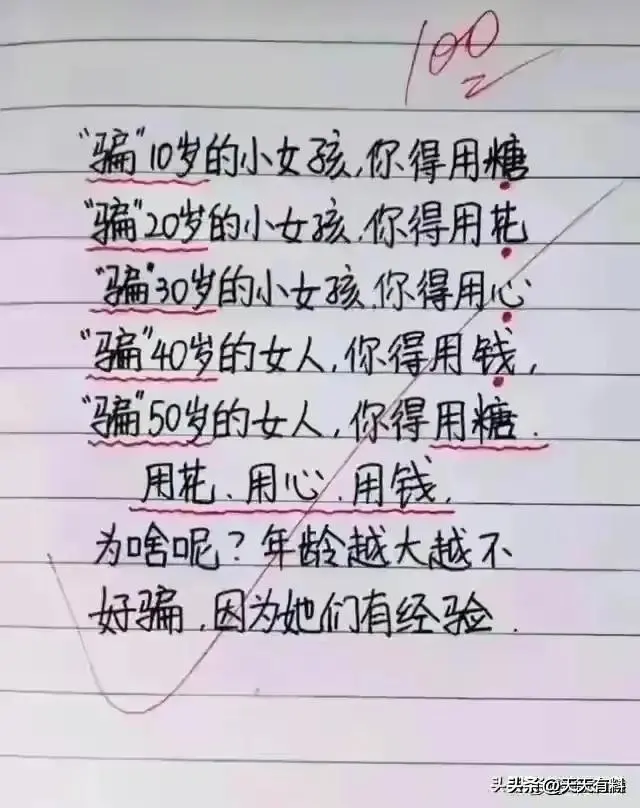 100
“骗”10岁的小女孩,你得用糖
“骗”20岁的小女孩,你得用花
“骗”30岁的小女孩,你得用心
“骗”40岁的女人,你得用钱,
“骗”50岁的女人,你得用糖.
用花、用心、用钱,
为啥呢?年龄越大越不
好骗,因为她们有经验.
头条@天天有料